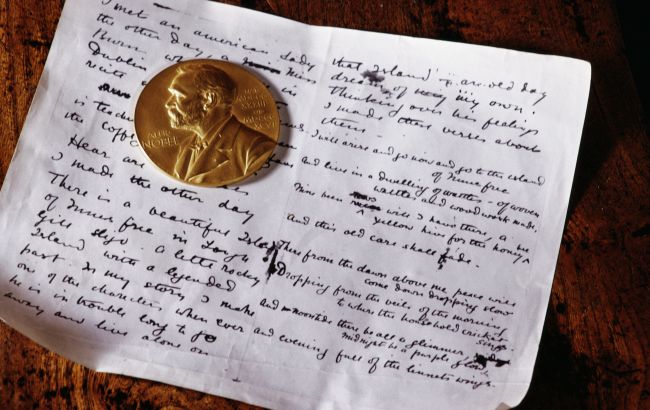 I met an american lady
the other day, a Miss
Burn
Dublin
is teach
the coffee
Hear are
I made the other day
There is a beautiful Island
of Innis free in Lough
Gill Sligo. A little rocky
Island with a legended
past. In my story I make
one of the characters when ever
he is in trouble long to go
away and live alone on
ALFR.
NOBEL
that Island - an old day
dream of my own.
Thinking over his feelings
I made these verses about
them -
I will arise and go now and go to the island
of Innis free
and live in a dwelling of wattles - of woven
wattles and wood work made,
Nine been rows will I have there, a
yellow hive for the honey
And this old care shall fade.
There from the dawn above me peace will
come down dropping slow
Dropping from the veils of the morning
to where the household cricket
sings
and noontide there be all a glimmer,
midnight be a purple glow
and evening full of the linnets wings.